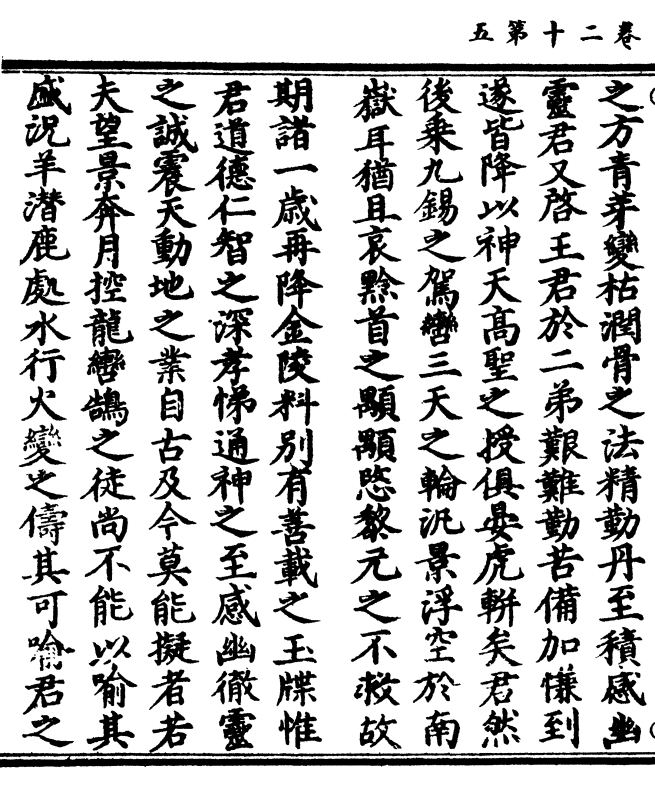 卷第二十五
之方青芽變枯潤骨之法精勤丹至積感幽
靈君又啓王君於二弟艱難勤苦備加慊到
遂皆降以神天高聖之授俱晏虎軿矣君然
後乘九錫之駕轡三天之輪汎景浮空於南
嶽耳猶且哀黔首之顒顒愍黎元之不救故
期諸一歲再降金陵料別有善載之玉牒惟
君道德仁智之深孝悌通神之至感幽徹靈
之誠震天動地之業自古及今莫能擬者若
夫望景奔月控龍轡鵠之徒尚不能以喻其
盛況羊潜鹿處水行火變之儔其可喻君之